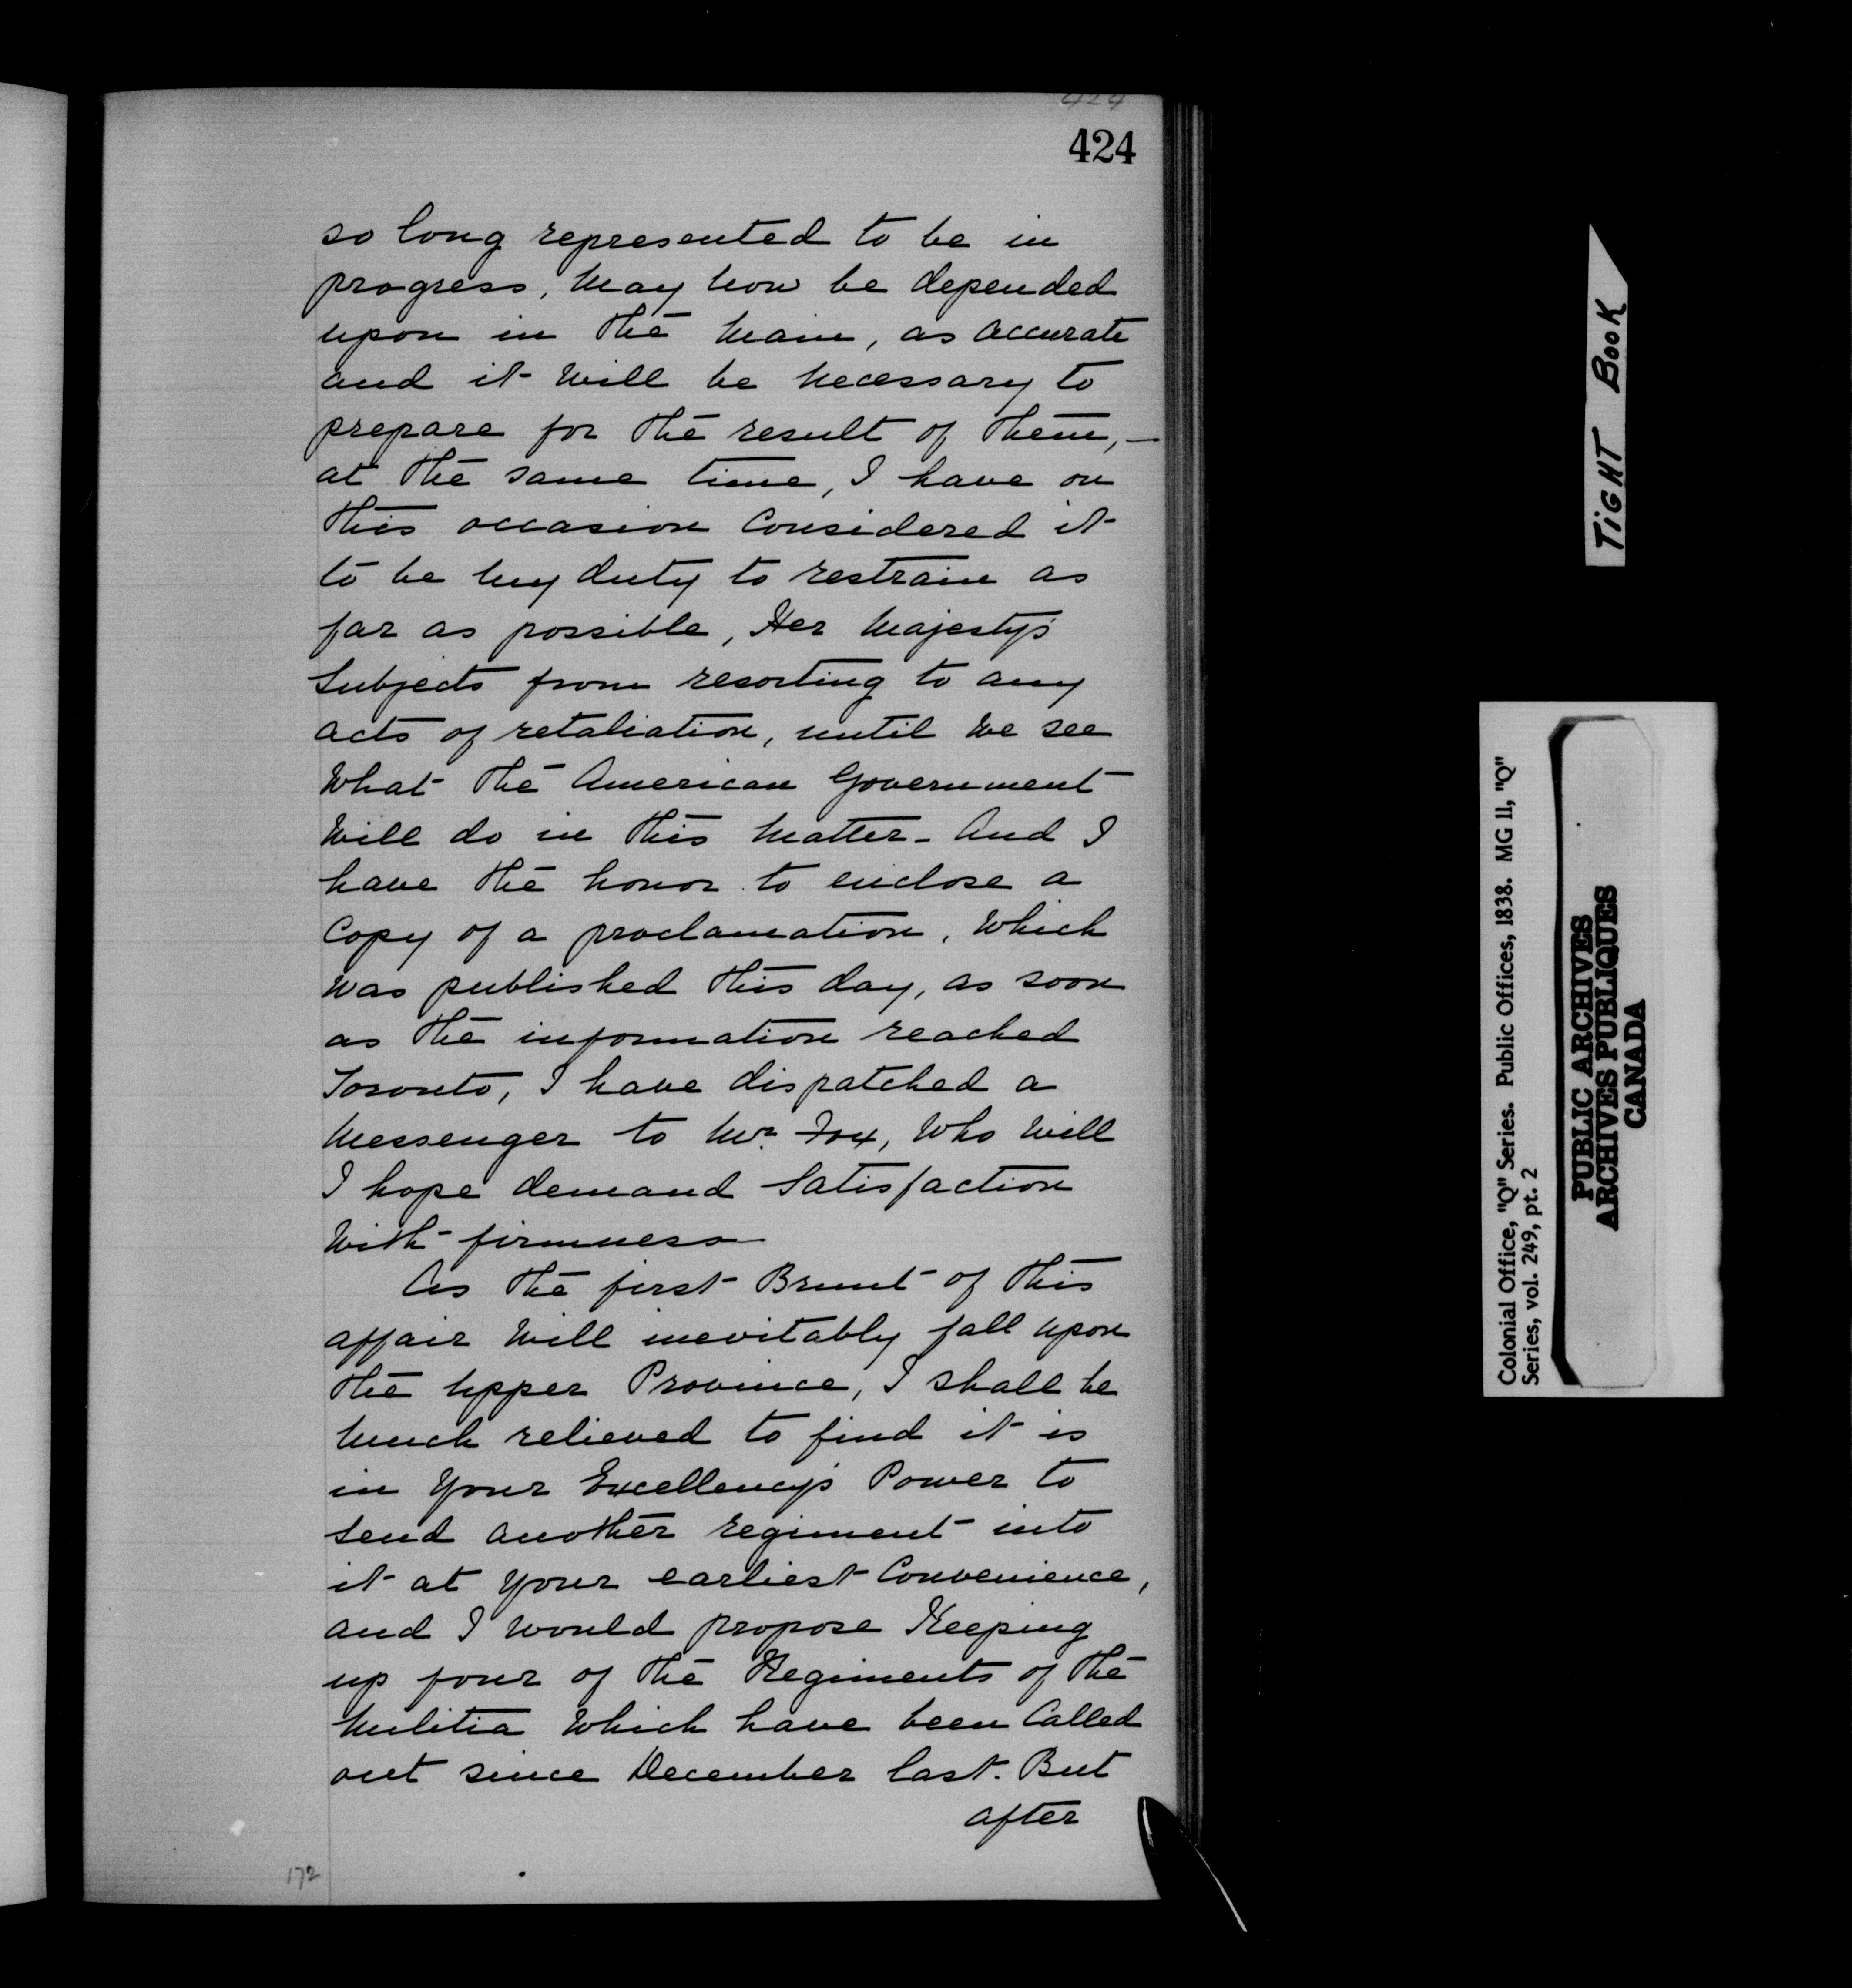 424
424
so long represented to be in
progress, may now be depended
upon in the main, as accurate
and it will be necessary to
prepare for the result of them,—
at the same time, I have on
this occasion Considered it
to be my duty to restrain as
far as possible, Her Majesty's
Subjects from resorting to any
acts of retaliation, until we see
What the American Government
Will do in this matter - And I
have the honor to enclose a
Copy of a proclamation, Which
was published this day, as soon
as the information reached
Toronto, I have dispatched a
Messenger to Mr. Fox, Who Will
I hope demand Satisfaction
With firmness
As the first Brunt of this
affair Will inevitably fall upon
the upper Province, I shall be
much relieved to find it is
in Your Excellency's Power to
Send another regiment into
it at your earliest Convenience,
and I would propose Keeping
up four of the Regiments of the
Militia Which have been Called
out since December last. But
after
172
TIGHT BOOK
Colonial Office, "Q" Series. Public Offices, 1838. MG 11, "Q"
Series, vol. 249, pt. 2
PUBLIC ARCHIVES
ARCHIVES PUBLIQUES
CANADA